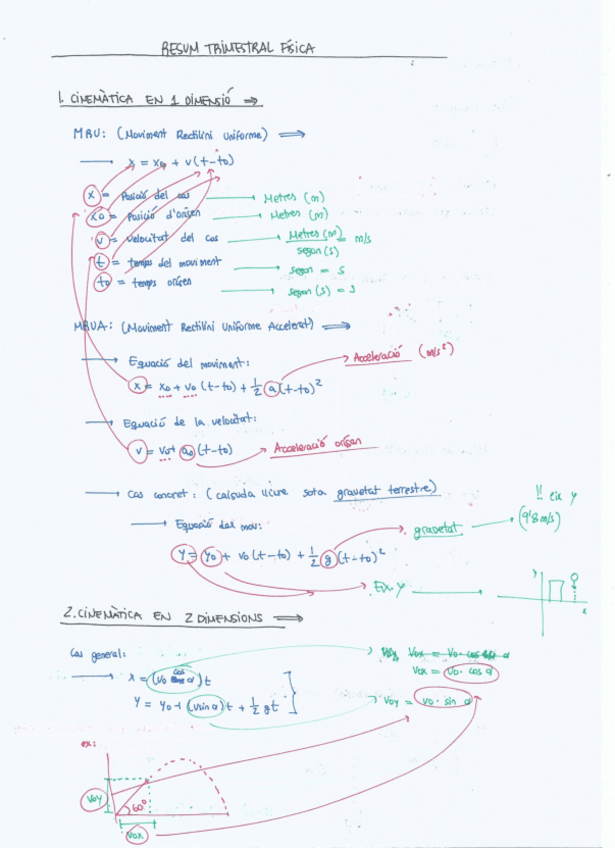 RESUM TRIMESTRAL FÍSICA
1. CINEMÀTICA EN 1 DIMENSIÓ ⇒
MRU: (Moviment Rectilini Uniforme) ⇒
→ x = x0 + v(t-t0)
x = Posició del cos → Metres (m)
x0 = Posició d'origen → Metres (m)
v = velocitat del cos → Metres (m) / segon (s) = m/s
t = temps del moviment → segon = s
t0 = temps origen → segon (s) = s
MRUA: (Moviment Rectilini Uniforme Accelerat) ⇒
→ Equació del moviment: → Acceleració (m/s²)
x = x0 + v0 (t-t0) + 1/2 a (t-t0)²
→ Equació de la velocitat:
v = v0 + a0 (t-t0) → Acceleració origen
→ Cas concret: (caiguda lliure sota gravetat terrestre)
!! eix y
→ Equació del mov: → gravetat → (9'8 m/s)
y = y0 + v0 (t-t0) + 1/2 g (t-t0)²
→ Eix y →
y
x
2. CINEMÀTICA EN 2 DIMENSIONS ⇒
Cas general: → Vox = Vo · cos α
→ x = (v0 cos α) t
Vox = Vo · cos α
y = y0 + (v sin α) t + 1/2 gt
→ Voy = Vo · sin α
ex:
Voy
60°
Vox